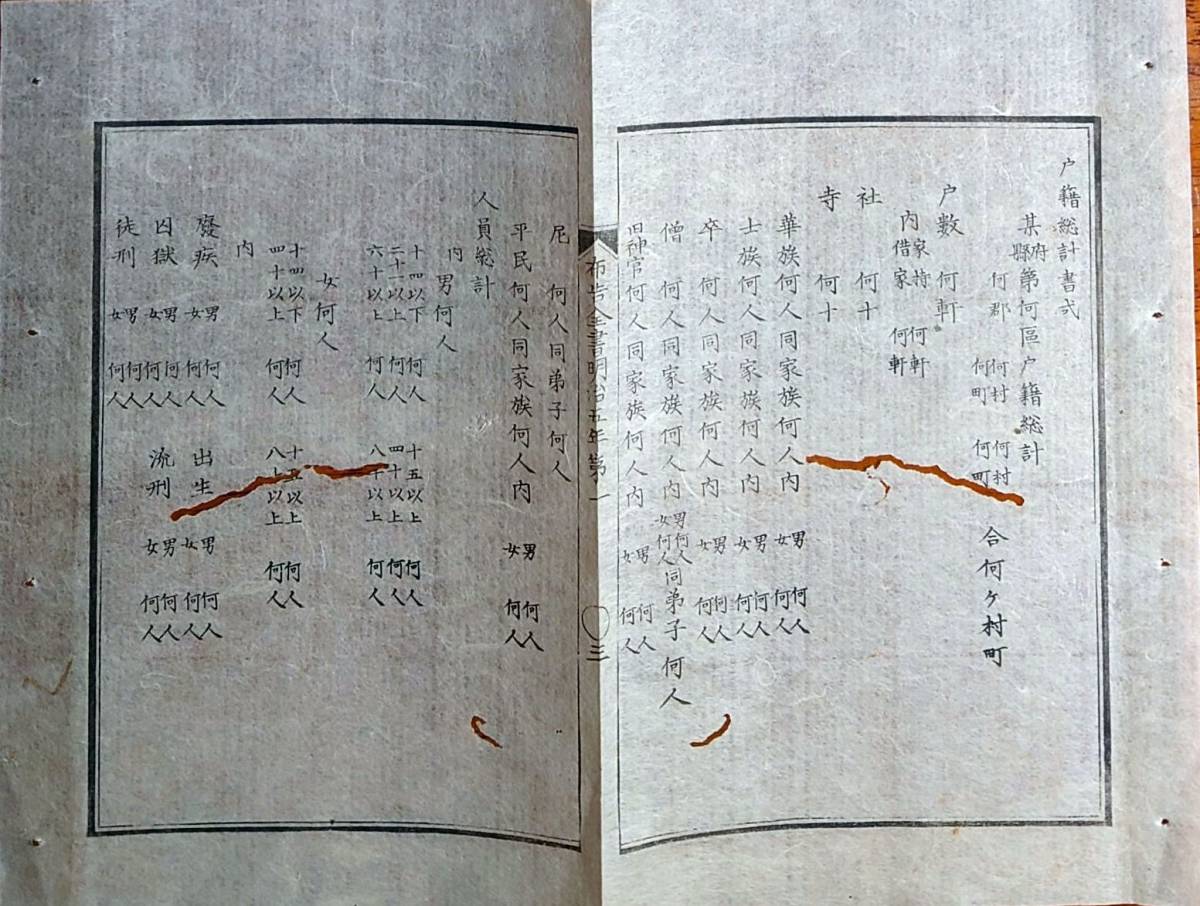 戸籍総計書式
某府縣第何區戸籍総計
何郡 何村何町 何村何町 合何ヶ村町
戸数 何軒
内 家持 何軒 借家 何軒
社 何十
寺 何十
華族何人同家族何人内 男何人 女何人
士族何人同家族何人内 男何人 女何人
卒 何人同家族何人内 男何人 女何人
僧 何人同家族何人内 男何人 女何人 同弟子 何人
旧神官何人同家族何人内 男何人 女何人
布告全書明治五年第一 〇三
尼 何人同弟子何人
平民何人同家族何人内 男何人 女何人
人員総計
内男何人
十四以下 何人 十五以上 何人
二十一以上 何人 四十以上 何人
六十以上 何人 八十以上 何人
女何人
十四以下 何人 十五以上 何人
四十以上 何人 八十以上 何人
内
癈疾 男何人 女何人 出生 男何人 女何人
囚獄 男何人 女何人 流刑 男何人 女何人
徒刑 男何人 女何人